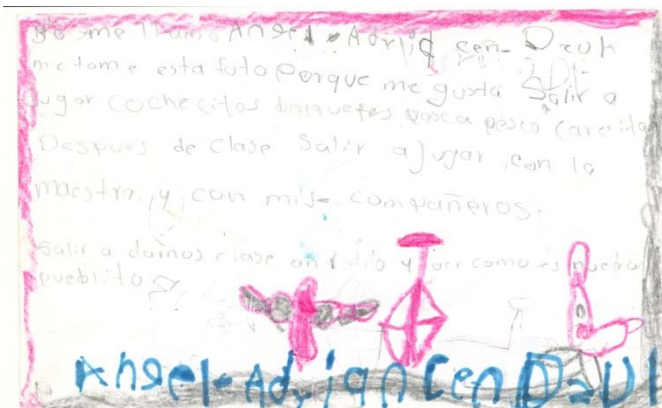 Yo me llamo Angel Adrian Cen Dzul
me tome esta foto porque me gusta Salir a
jugar cochecitos
Despues de clase Salir a jugar con la
maestra y con mis compañeros.
Salir a darnos clase un ratito y ver como es nuetro
pueblito
Angel Adrian Cen Dzul